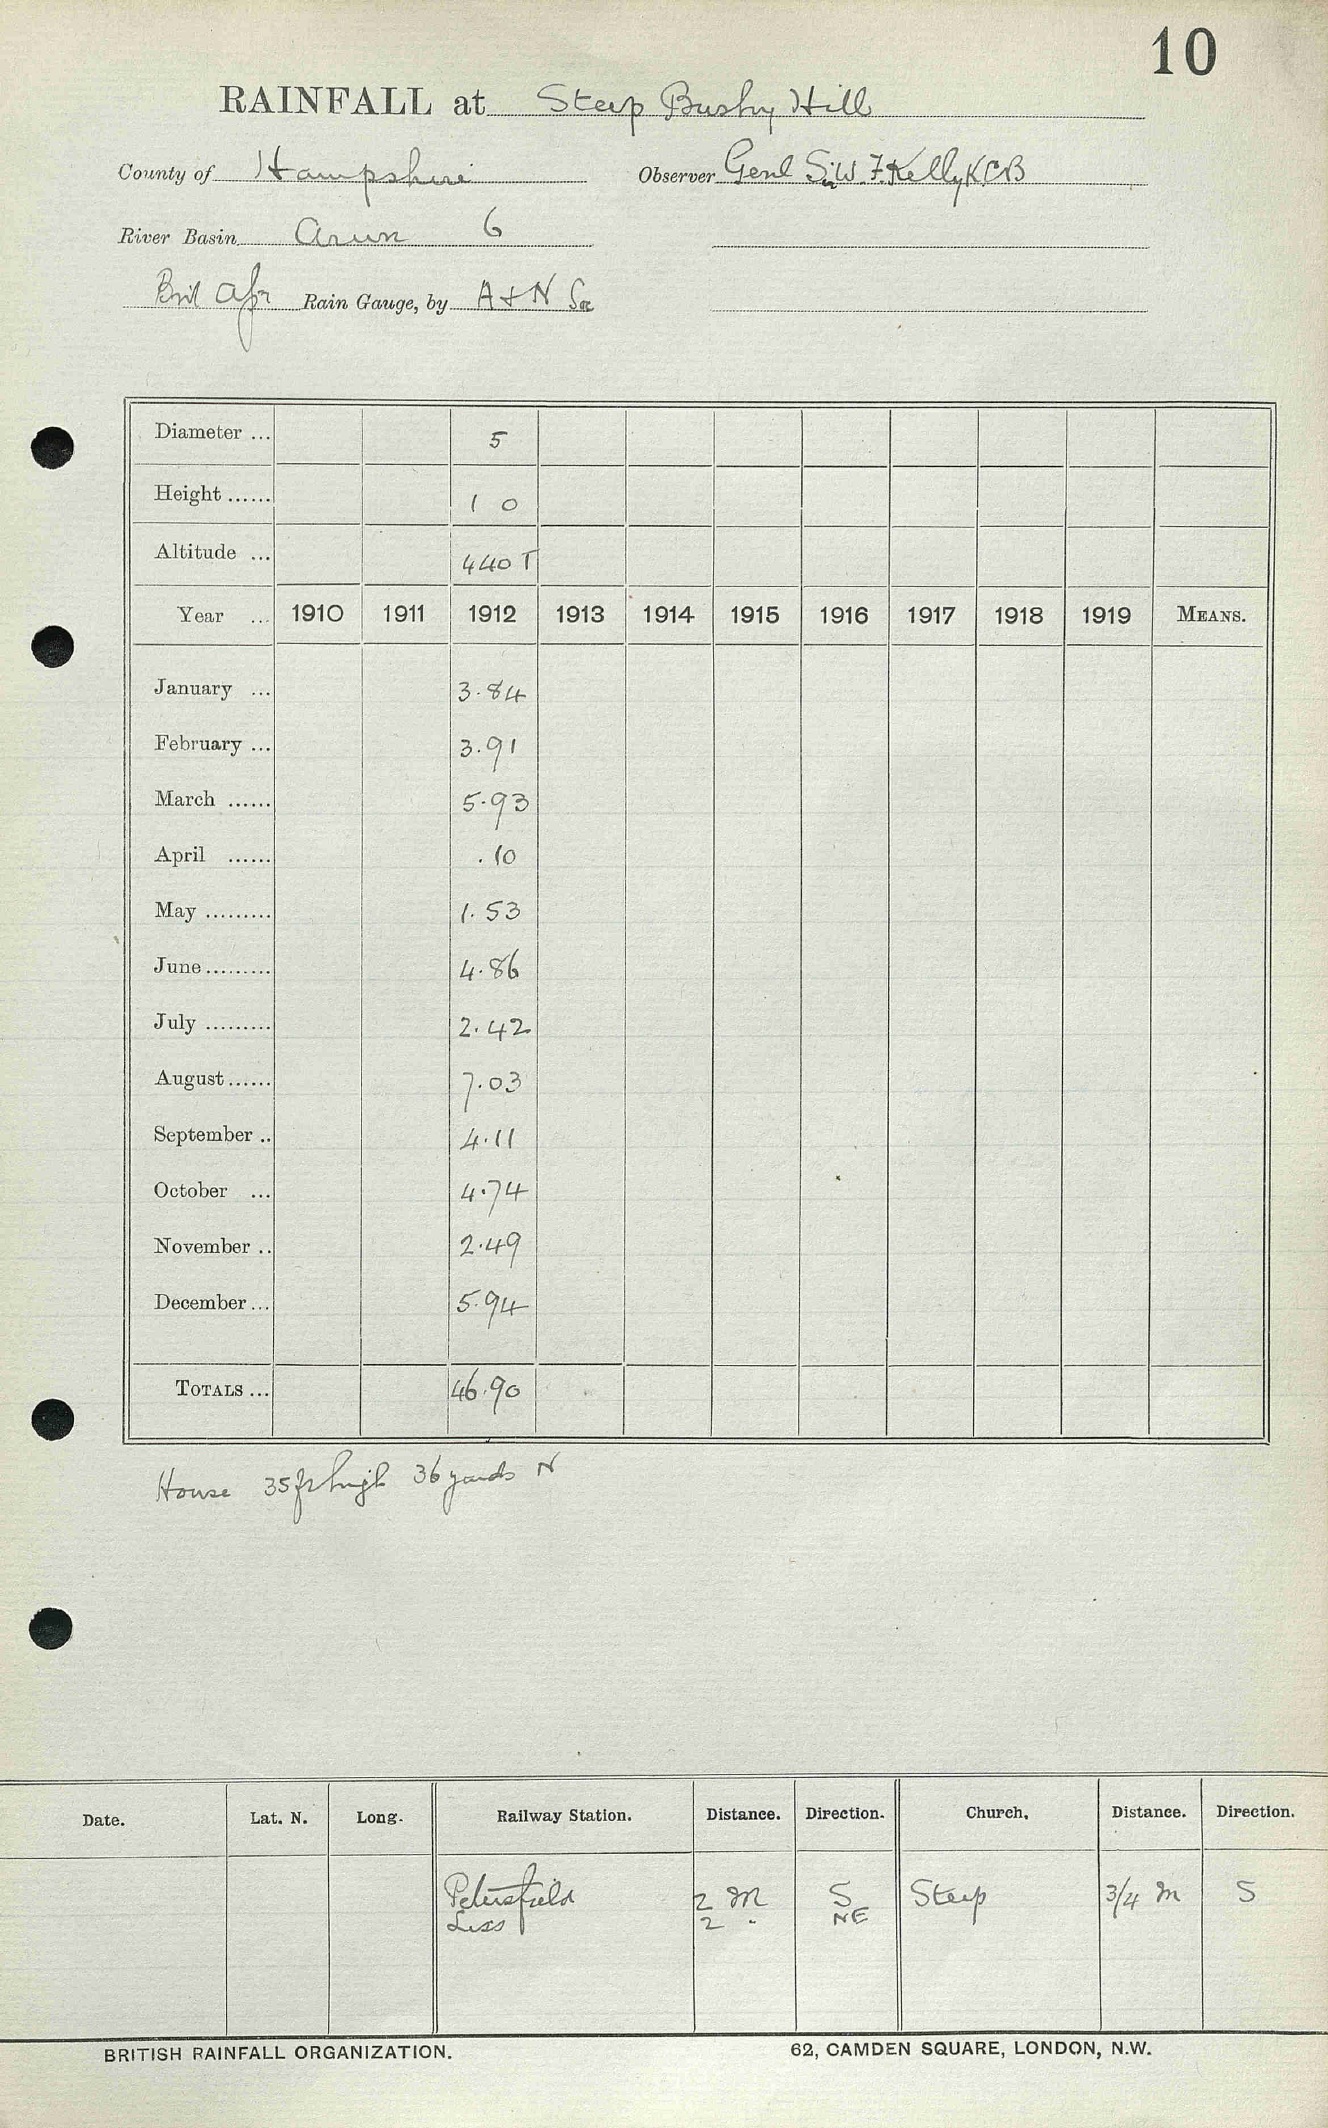 10
RAINFALL at Steep Bushy Hill
County of Hampshire Observer Genl Sir W. F. Kelly KCB
River Basin Arun 6
Rain Gauge, by A & N Soc
Diameter ... 5
Height ...... 1 0
Altitude ... 440 T
Year ... 1910 1911 1912 1913 1914 1915 1916 1917 1918 1919 MEANS.
January ... 3.84
February ... 3.91
March ...... 5.93
April ...... .10
May ......... 1.53
June ......... 4.86
July ......... 2.42
August ...... 7.03
September .. 4.11
October ... 4.74
November .. 2.49
December ... 5.94
TOTALS ... 46.90
House 35 ft high 36 yards N
Date. Lat. N. Long. Railway Station. Distance. Direction. Church. Distance. Direction.
Petersfield 2 M S Steep 3/4 M S
Liss 2 " NE
BRITISH RAINFALL ORGANIZATION. 62, CAMDEN SQUARE, LONDON, N.W.